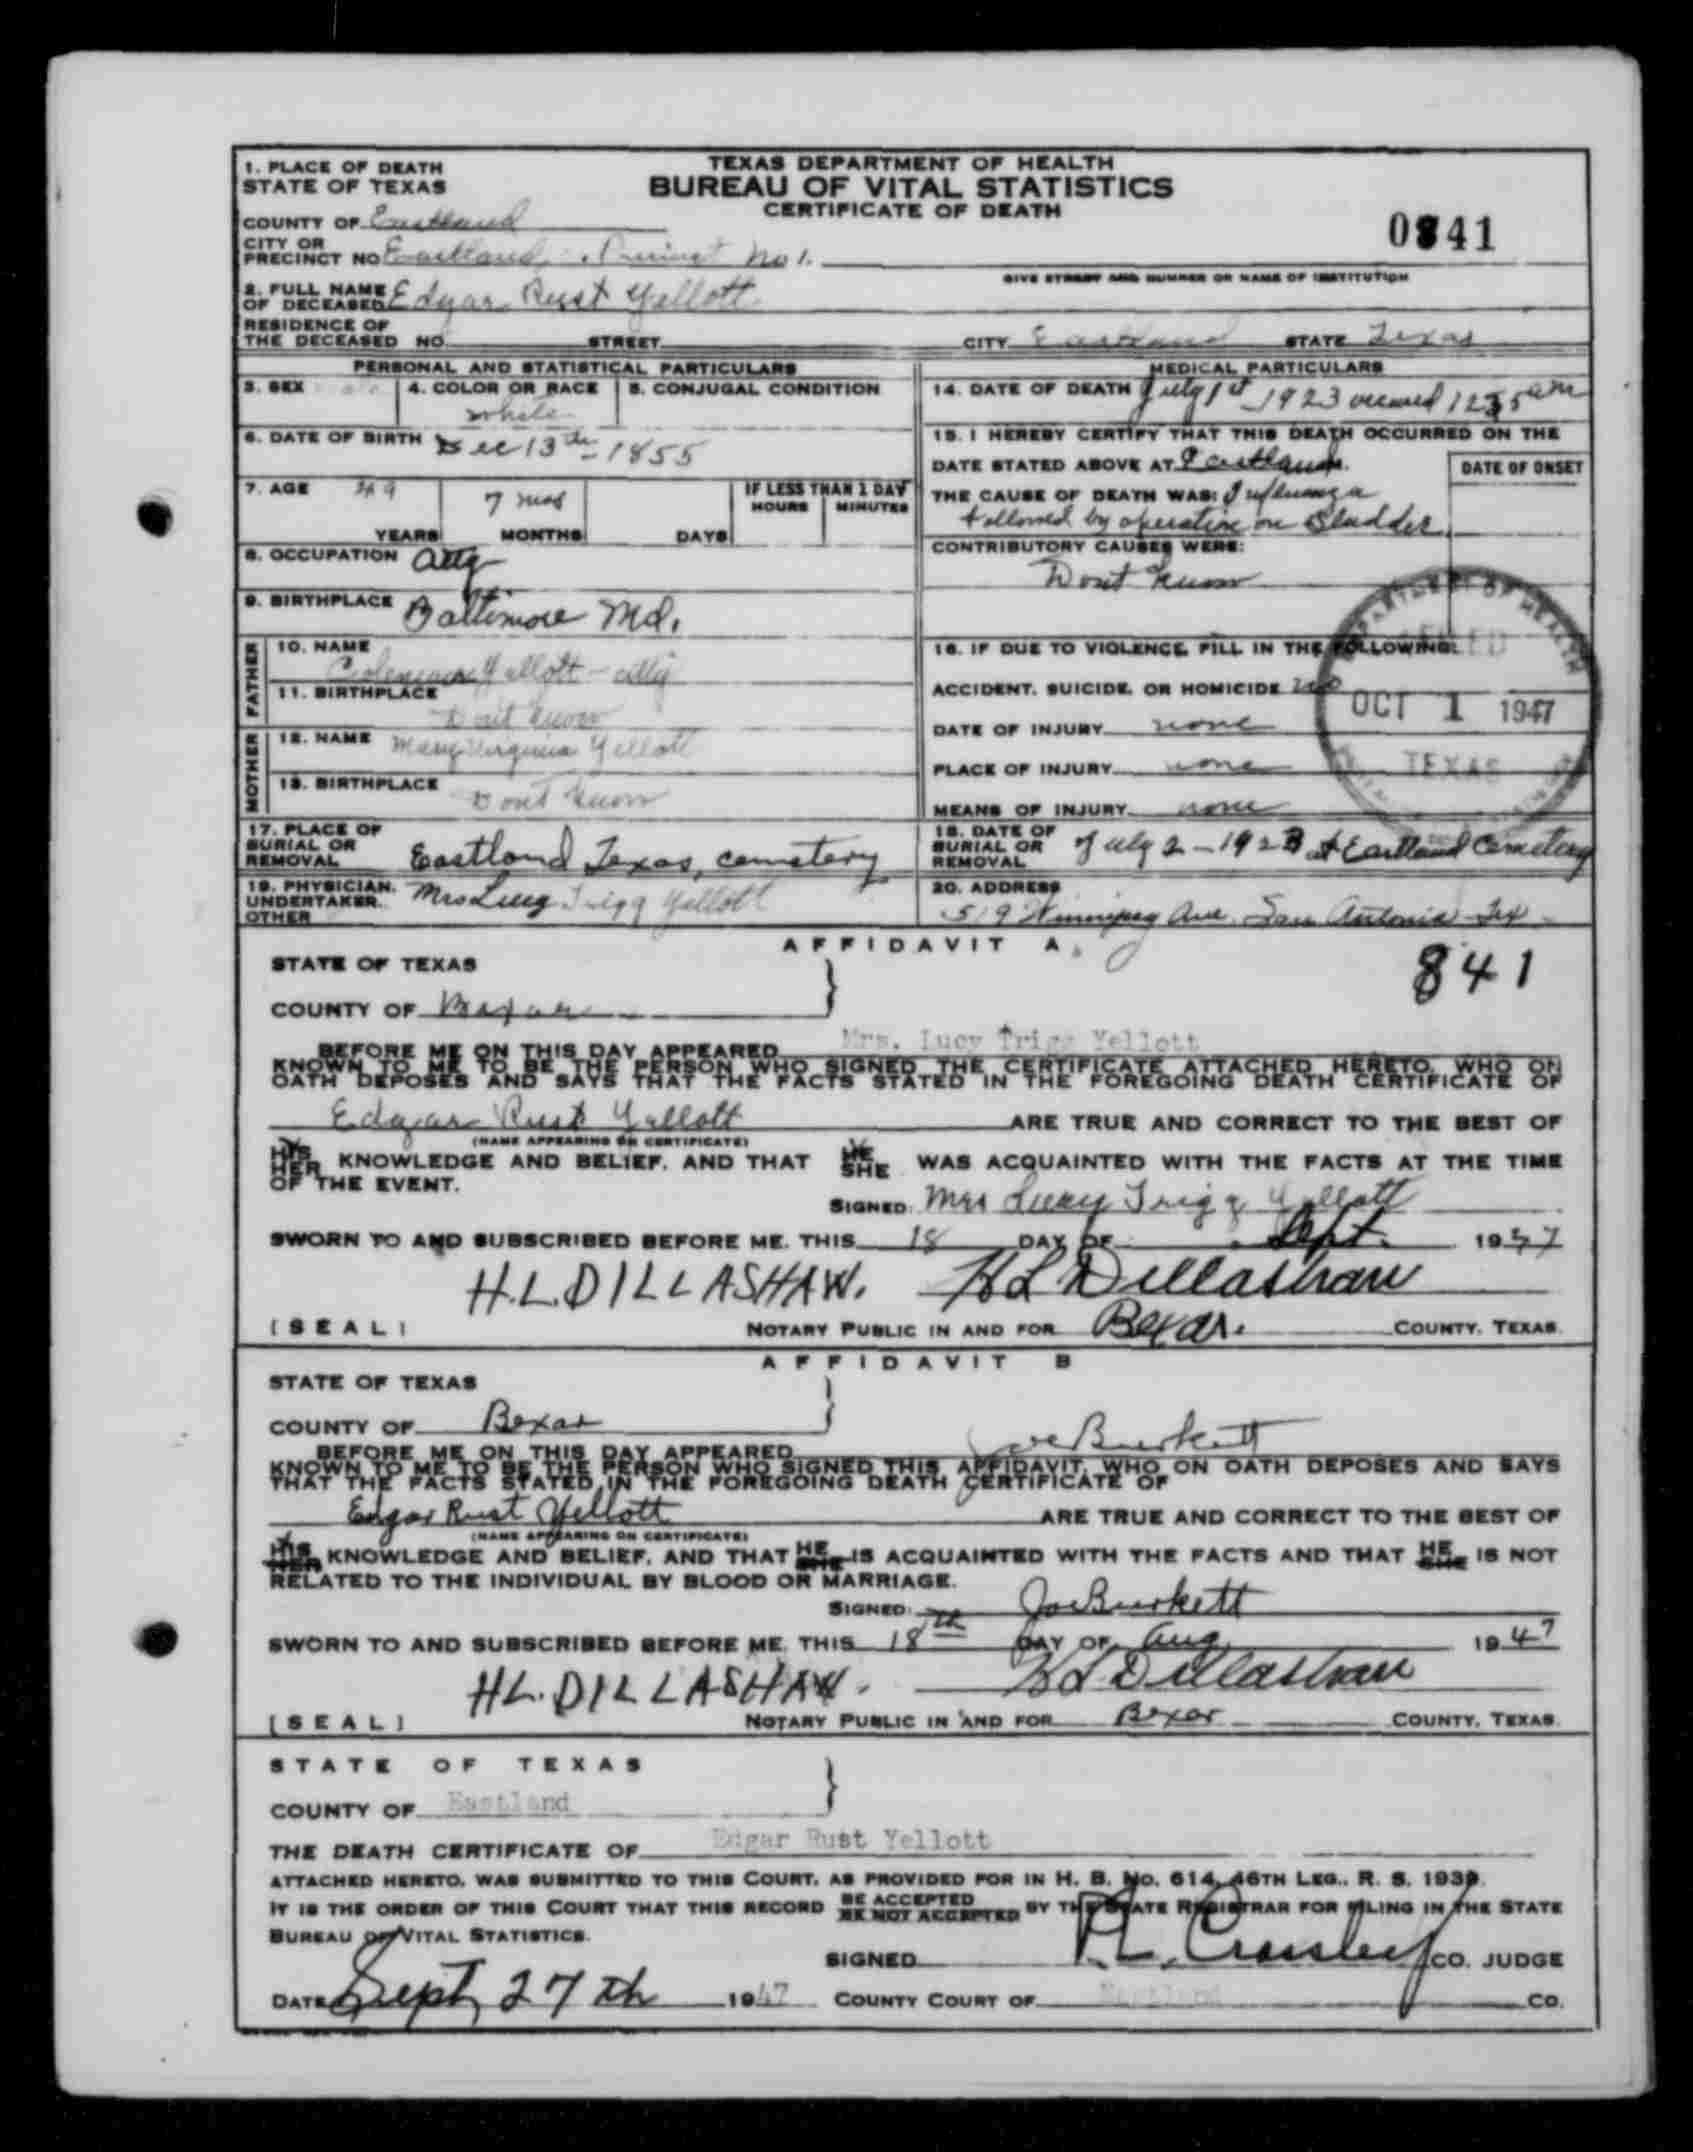 1. PLACE OF DEATH
STATE OF TEXAS
TEXAS DEPARTMENT OF HEALTH
BUREAU OF VITAL STATISTICS
CERTIFICATE OF DEATH
0841
COUNTY OF Eastland
CITY OR
PRECINCT NO Eastland, Precinct No 1.
GIVE STREET AND NUMBER OR NAME OF INSTITUTION
2. FULL NAME
OF DECEASED Edgar Rust Yellott
RESIDENCE OF
THE DECEASED NO. STREET CITY Eastland STATE Texas
PERSONAL AND STATISTICAL PARTICULARS
3. SEX male 4. COLOR OR RACE white 5. CONJUGAL CONDITION
6. DATE OF BIRTH Dec 13th - 1855
7. AGE YEARS 7 mos MONTHS DAYS IF LESS THAN 1 DAY HOURS MINUTES
8. OCCUPATION Atty
9. BIRTHPLACE Baltimore Md.
FATHER
10. NAME Coleman Yellott - atty
11. BIRTHPLACE Dont know
MOTHER
12. NAME Mary Virginia Yellott
13. BIRTHPLACE Dont know
MEDICAL PARTICULARS
14. DATE OF DEATH July 1st 1923 occured 1255 am
15. I HEREBY CERTIFY THAT THIS DEATH OCCURRED ON THE
DATE STATED ABOVE AT Eastland.
DATE OF ONSET
THE CAUSE OF DEATH WAS: Influenza
followed by operation on Bladder
CONTRIBUTORY CAUSES WERE:
Dont know
16. IF DUE TO VIOLENCE, FILL IN THE FOLLOWING:
ACCIDENT, SUICIDE, OR HOMICIDE no
DATE OF INJURY none
PLACE OF INJURY none
MEANS OF INJURY none
DEPARTMENT OF HEALTH
FILED
OCT 1 1947
TEXAS
17. PLACE OF
BURIAL OR
REMOVAL Eastland Texas, cemetery
18. DATE OF
BURIAL OR
REMOVAL July 2 - 1923 at Eastland Cemetery
19. PHYSICIAN,
UNDERTAKER,
OTHER Mrs Lucy Trigg Yellott
20. ADDRESS
519 Winnipeg Ave. San Antonio Tex
AFFIDAVIT A.
STATE OF TEXAS
841
COUNTY OF Bexar
BEFORE ME ON THIS DAY APPEARED Mrs. Lucy Trigg Yellott
KNOWN TO ME TO BE THE PERSON WHO SIGNED THE CERTIFICATE ATTACHED HERETO, WHO ON
OATH DEPOSES AND SAYS THAT THE FACTS STATED IN THE FOREGOING DEATH CERTIFICATE OF
Edgar Rust Yellott ARE TRUE AND CORRECT TO THE BEST OF
(NAME APPEARING ON CERTIFICATE)
HIS
HER KNOWLEDGE AND BELIEF, AND THAT HE
SHE WAS ACQUAINTED WITH THE FACTS AT THE TIME
OF THE EVENT.
SIGNED: Mrs Lucy Trigg Yellott
SWORN TO AND SUBSCRIBED BEFORE ME, THIS 18 DAY OF Sept. 1947
H.L. DILLASHAW. H L Dillashaw
[SEAL] NOTARY PUBLIC IN AND FOR Bexar. COUNTY, TEXAS.
AFFIDAVIT B
STATE OF TEXAS
COUNTY OF Bexar
BEFORE ME ON THIS DAY APPEARED Joe Burkett
KNOWN TO ME TO BE THE PERSON WHO SIGNED THIS AFFIDAVIT, WHO ON OATH DEPOSES AND SAYS
THAT THE FACTS STATED IN THE FOREGOING DEATH CERTIFICATE OF
Edgar Rust Yellott ARE TRUE AND CORRECT TO THE BEST OF
(NAME APPEARING ON CERTIFICATE)
HIS
HER KNOWLEDGE AND BELIEF, AND THAT HE
SHE IS ACQUAINTED WITH THE FACTS AND THAT HE
SHE IS NOT
RELATED TO THE INDIVIDUAL BY BLOOD OR MARRIAGE.
SIGNED: Joe Burkett
SWORN TO AND SUBSCRIBED BEFORE ME, THIS 18th DAY OF Aug 1947
H L. DILLASHAW. H L Dillashaw
[SEAL] NOTARY PUBLIC IN AND FOR Bexar COUNTY, TEXAS.
STATE OF TEXAS
COUNTY OF Eastland
THE DEATH CERTIFICATE OF Edgar Rust Yellott
ATTACHED HERETO, WAS SUBMITTED TO THIS COURT, AS PROVIDED FOR IN H. B. NO. 614, 46TH LEG., R. S. 1939.
IT IS THE ORDER OF THIS COURT THAT THIS RECORD BE ACCEPTED
BE NOT ACCEPTED BY THE STATE REGISTRAR FOR FILING IN THE STATE
BUREAU OF VITAL STATISTICS.
SIGNED P. L. Crossley CO. JUDGE
DATE Sept 27th 1947 COUNTY COURT OF Eastland CO.